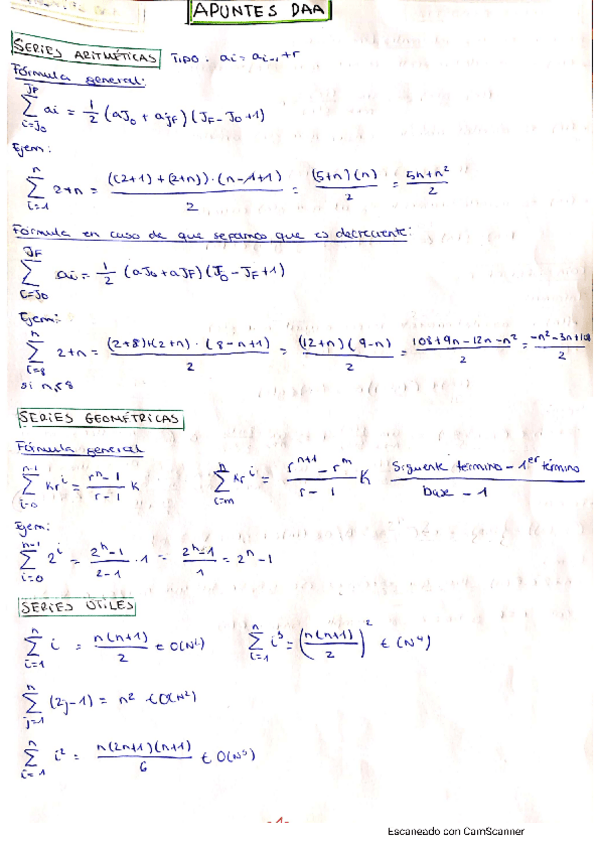 APUNTES DAA
SERIES ARITMÉTICAS TIPO. ai = ai-1 + r
Fórmula general:
∑_{i=J0}^{JF} ai = 1/2 (aJ0 + aJF)(JF - J0 + 1)
Ejem:
∑_{i=1}^{n} 2+n = ((2+1) + (2+n)) · (n-1+1) / 2 = (5+n)(n) / 2 = 5n+n² / 2
Fórmula en caso de que sepamos que es decreciente:
∑_{i=J0}^{JF} ai = 1/2 (aJ0 + aJF)(J0 - JF + 1)
Ejem:
∑_{i=8}^{n} 2+n = (2+8)+(2+n) · (8-n+1) / 2 = (12+n)(9-n) / 2 = 108+9n-12n-n² / 2 = -n²-3n+108 / 2
si n≤8
SERIES GEOMÉTRICAS
Fórmula general
∑_{i=0}^{n-1} Kr^i = r^n - 1 / r - 1 K ∑_{i=m}^{n} Kr^i = r^{n+1} - r^m / r - 1 K Siguiente término - 1er término / base - 1
Ejem:
∑_{i=0}^{n-1} 2^i = 2^n - 1 / 2 - 1 · 1 = 2^n - 1 / 1 = 2^n - 1
SERIES ÚTILES
∑_{i=1}^{n} i = n(n+1) / 2 ∈ O(N²) ∑_{i=1}^{n} i³ = (n(n+1) / 2)² ∈ (N⁴)
∑_{j=1}^{n} (2j-1) = n² ∈ O(N²)
∑_{i=1}^{n} i² = n(2n+1)(n+1) / 6 ∈ O(N³)
-1-
Escaneado con CamScanner